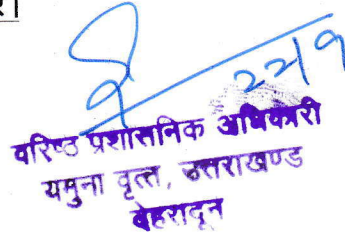 22/9
वरिष्ठ प्रशासनिक अधिकारी
यमुना वृत्त, उत्तराखण्ड
देहरादून